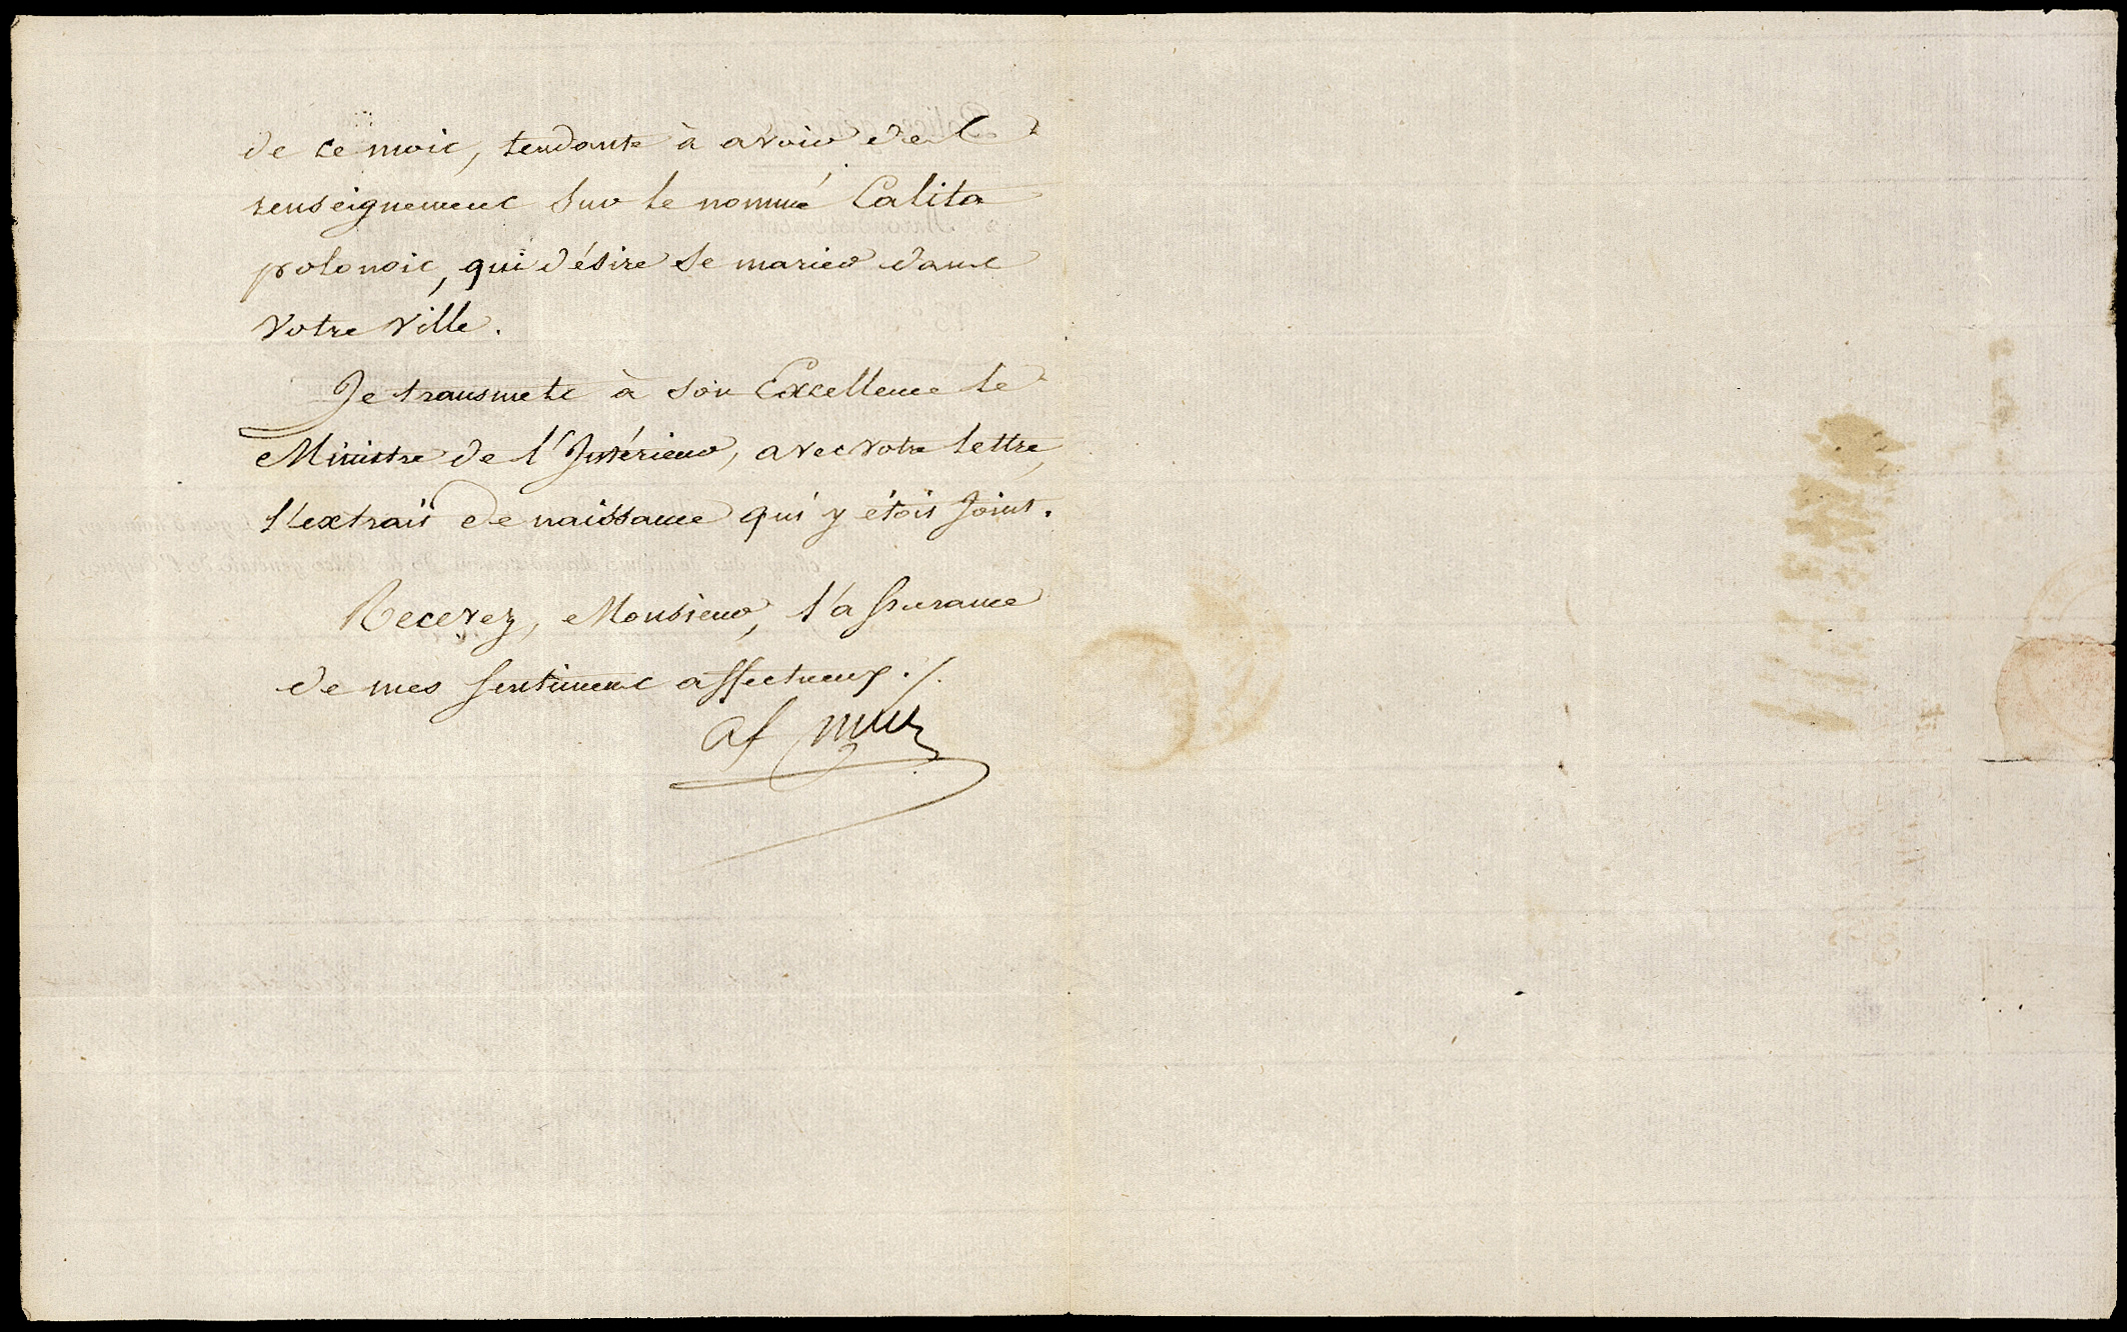 de ce mois, tendante à avoir des
renseignemens sur le nommé Calita
polonois, qui désire se marier dans
votre ville.
Je transmets à son Excellence le
Ministre de l'Intérieur, avec votre lettre,
l'extrait de naissance qui y étoit joint.
Recevez, Monsieur, l'assurance
de mes sentimens affectueux ./.